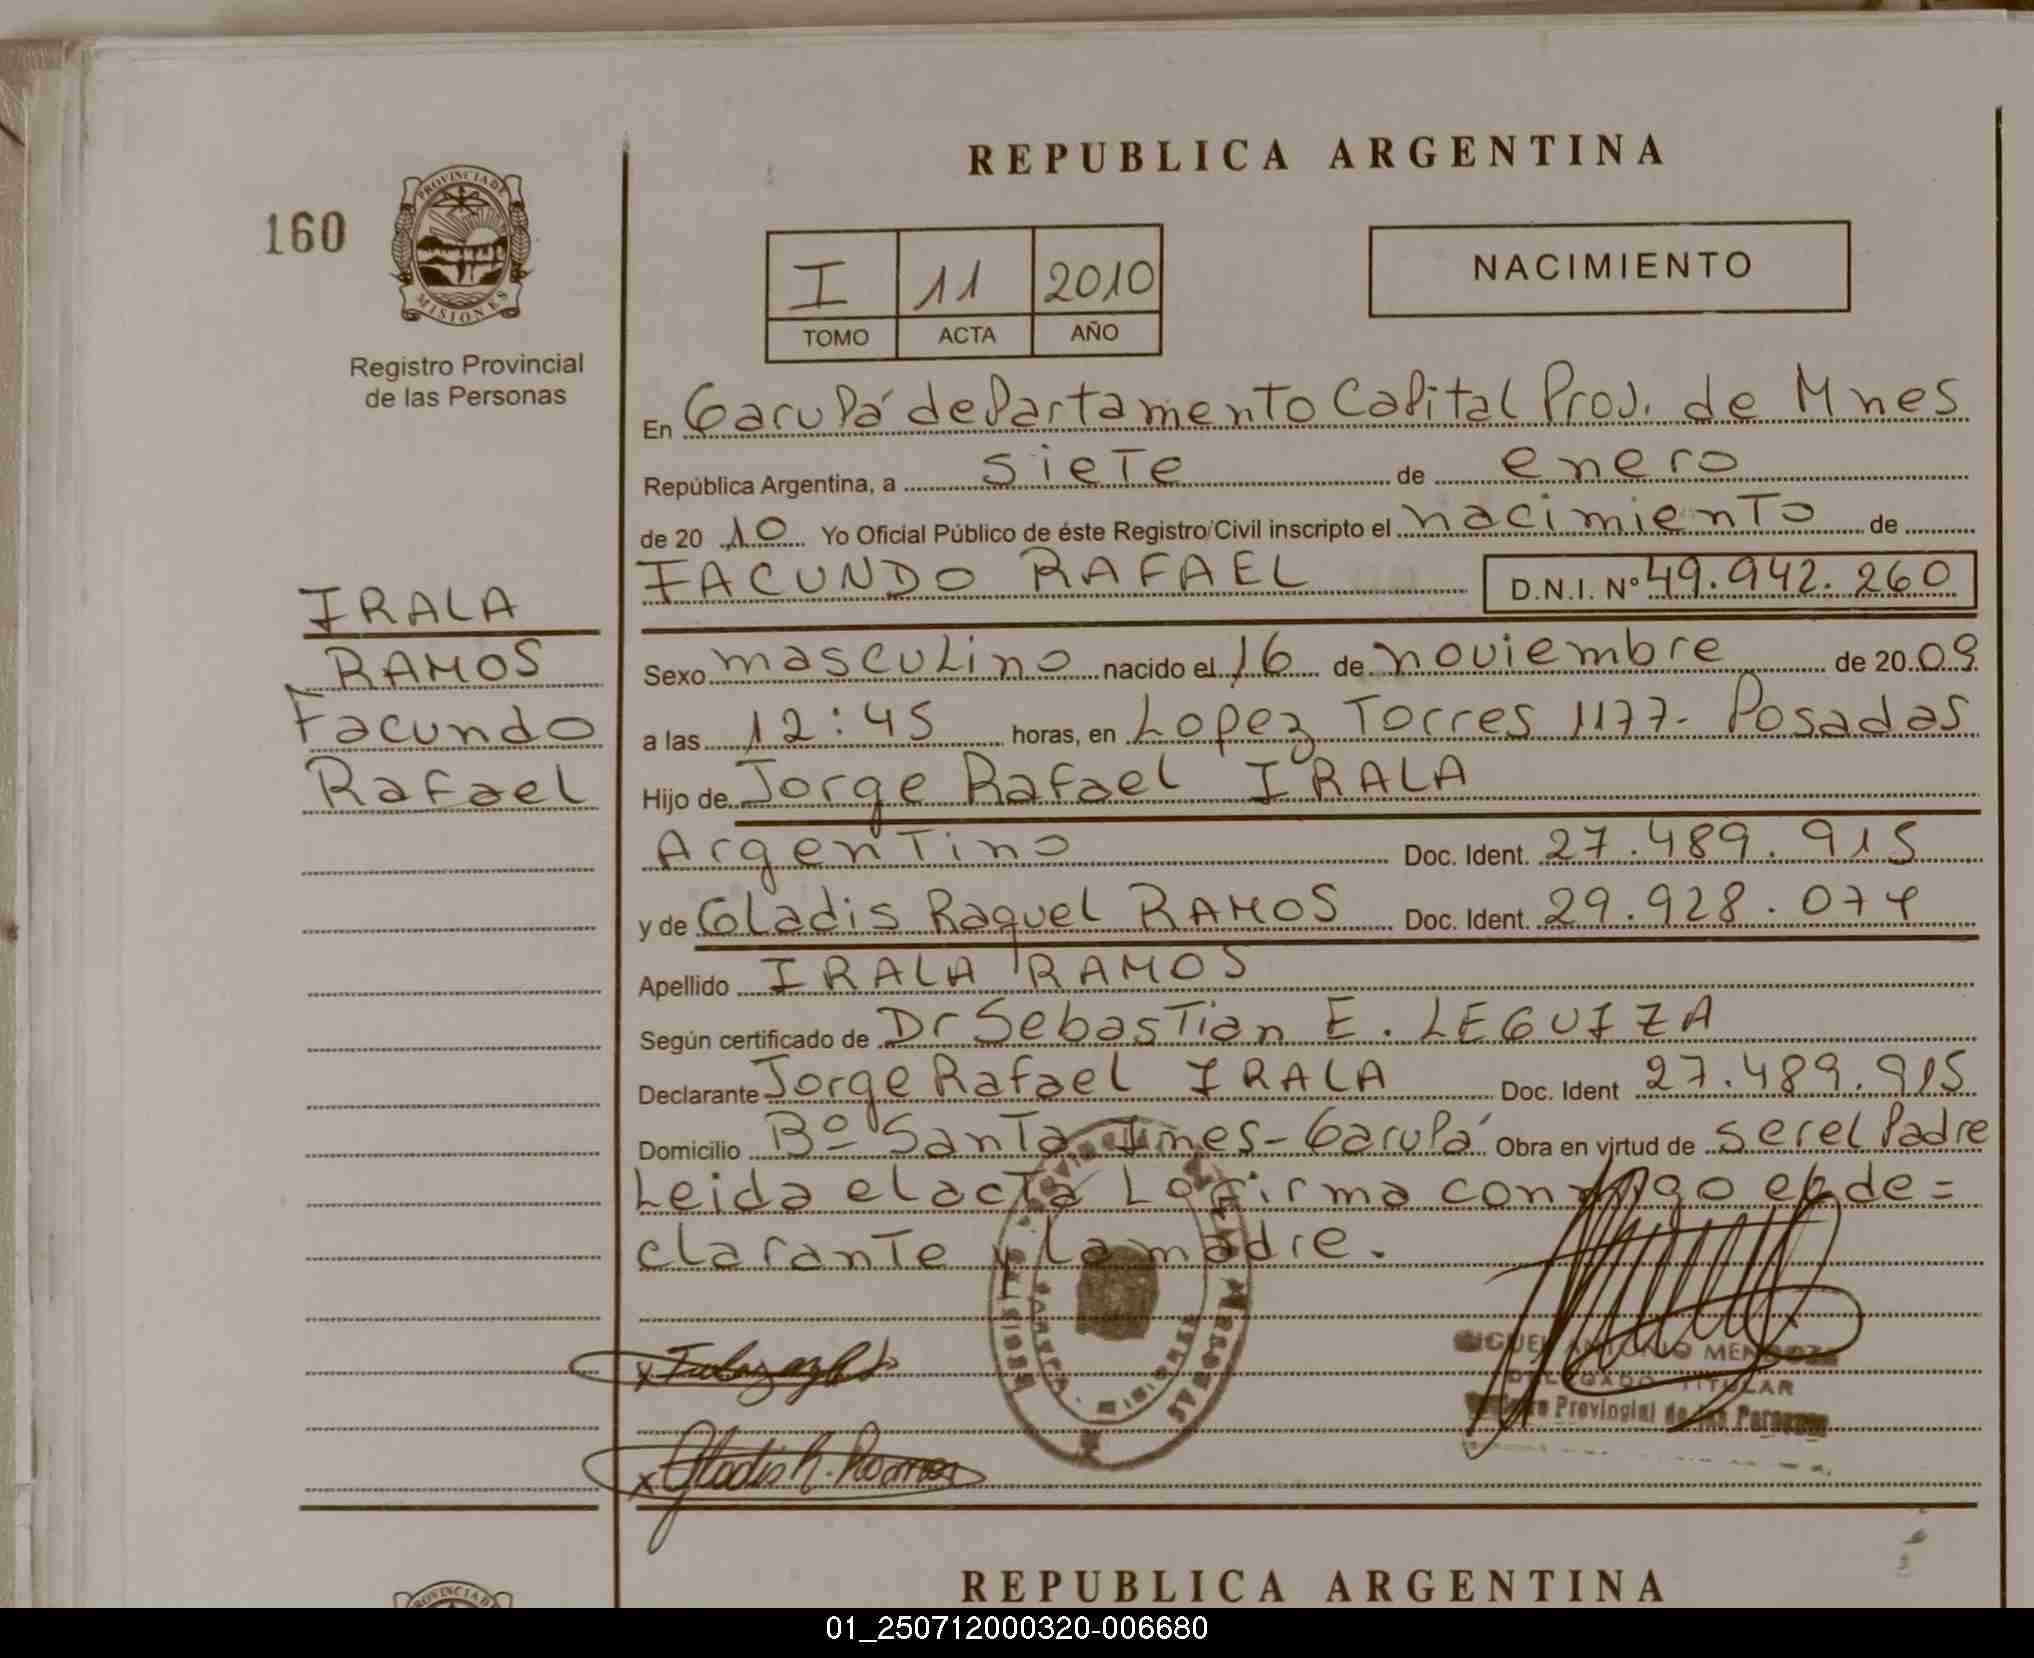 REPUBLICA ARGENTINA
160
PROVINCIA DE
MISIONES
Registro Provincial
de las Personas
I 11 2010
TOMO ACTA AÑO
NACIMIENTO
En Garupá departamento Capital Prov. de Mnes
República Argentina, a siete de enero
de 20 10 Yo Oficial Público de éste Registro Civil inscripto el nacimiento de
FACUNDO RAFAEL D.N.I. Nº 49.942.260
IRALA
RAMOS
Facundo
Rafael
Sexo masculino nacido el 16 de noviembre de 20 09
a las 12:45 horas, en Lopez Torres 1177- Posadas
Hijo de Jorge Rafael IRALA
Argentino Doc. Ident. 27.489.915
y de Gladis Raquel RAMOS Doc. Ident. 29.928.074
Apellido IRALA RAMOS
Según certificado de Dr Sebastian E. LEGUIZA
Declarante Jorge Rafael IRALA Doc. Ident 27.489.915
Domicilio Bº Santa Ines- Garupá Obra en virtud de ser el Padre
Leida el acta La firma conmigo el de=
clarante y la madre.
x
MIGUEL ANTONIO MENDOZA
DELEGADO TITULAR
Provincial de las Personas
x Gladis R. Ramos
REPUBLICA ARGENTINA
PROVINCIA DE
01_250712000320-006680